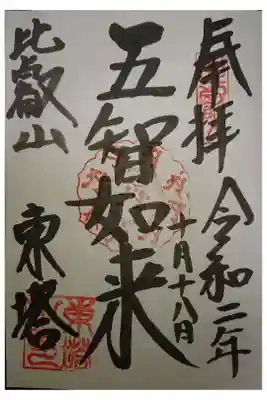 奉拝
令和二年
十月十八日
五智如来
比叡山
東塔